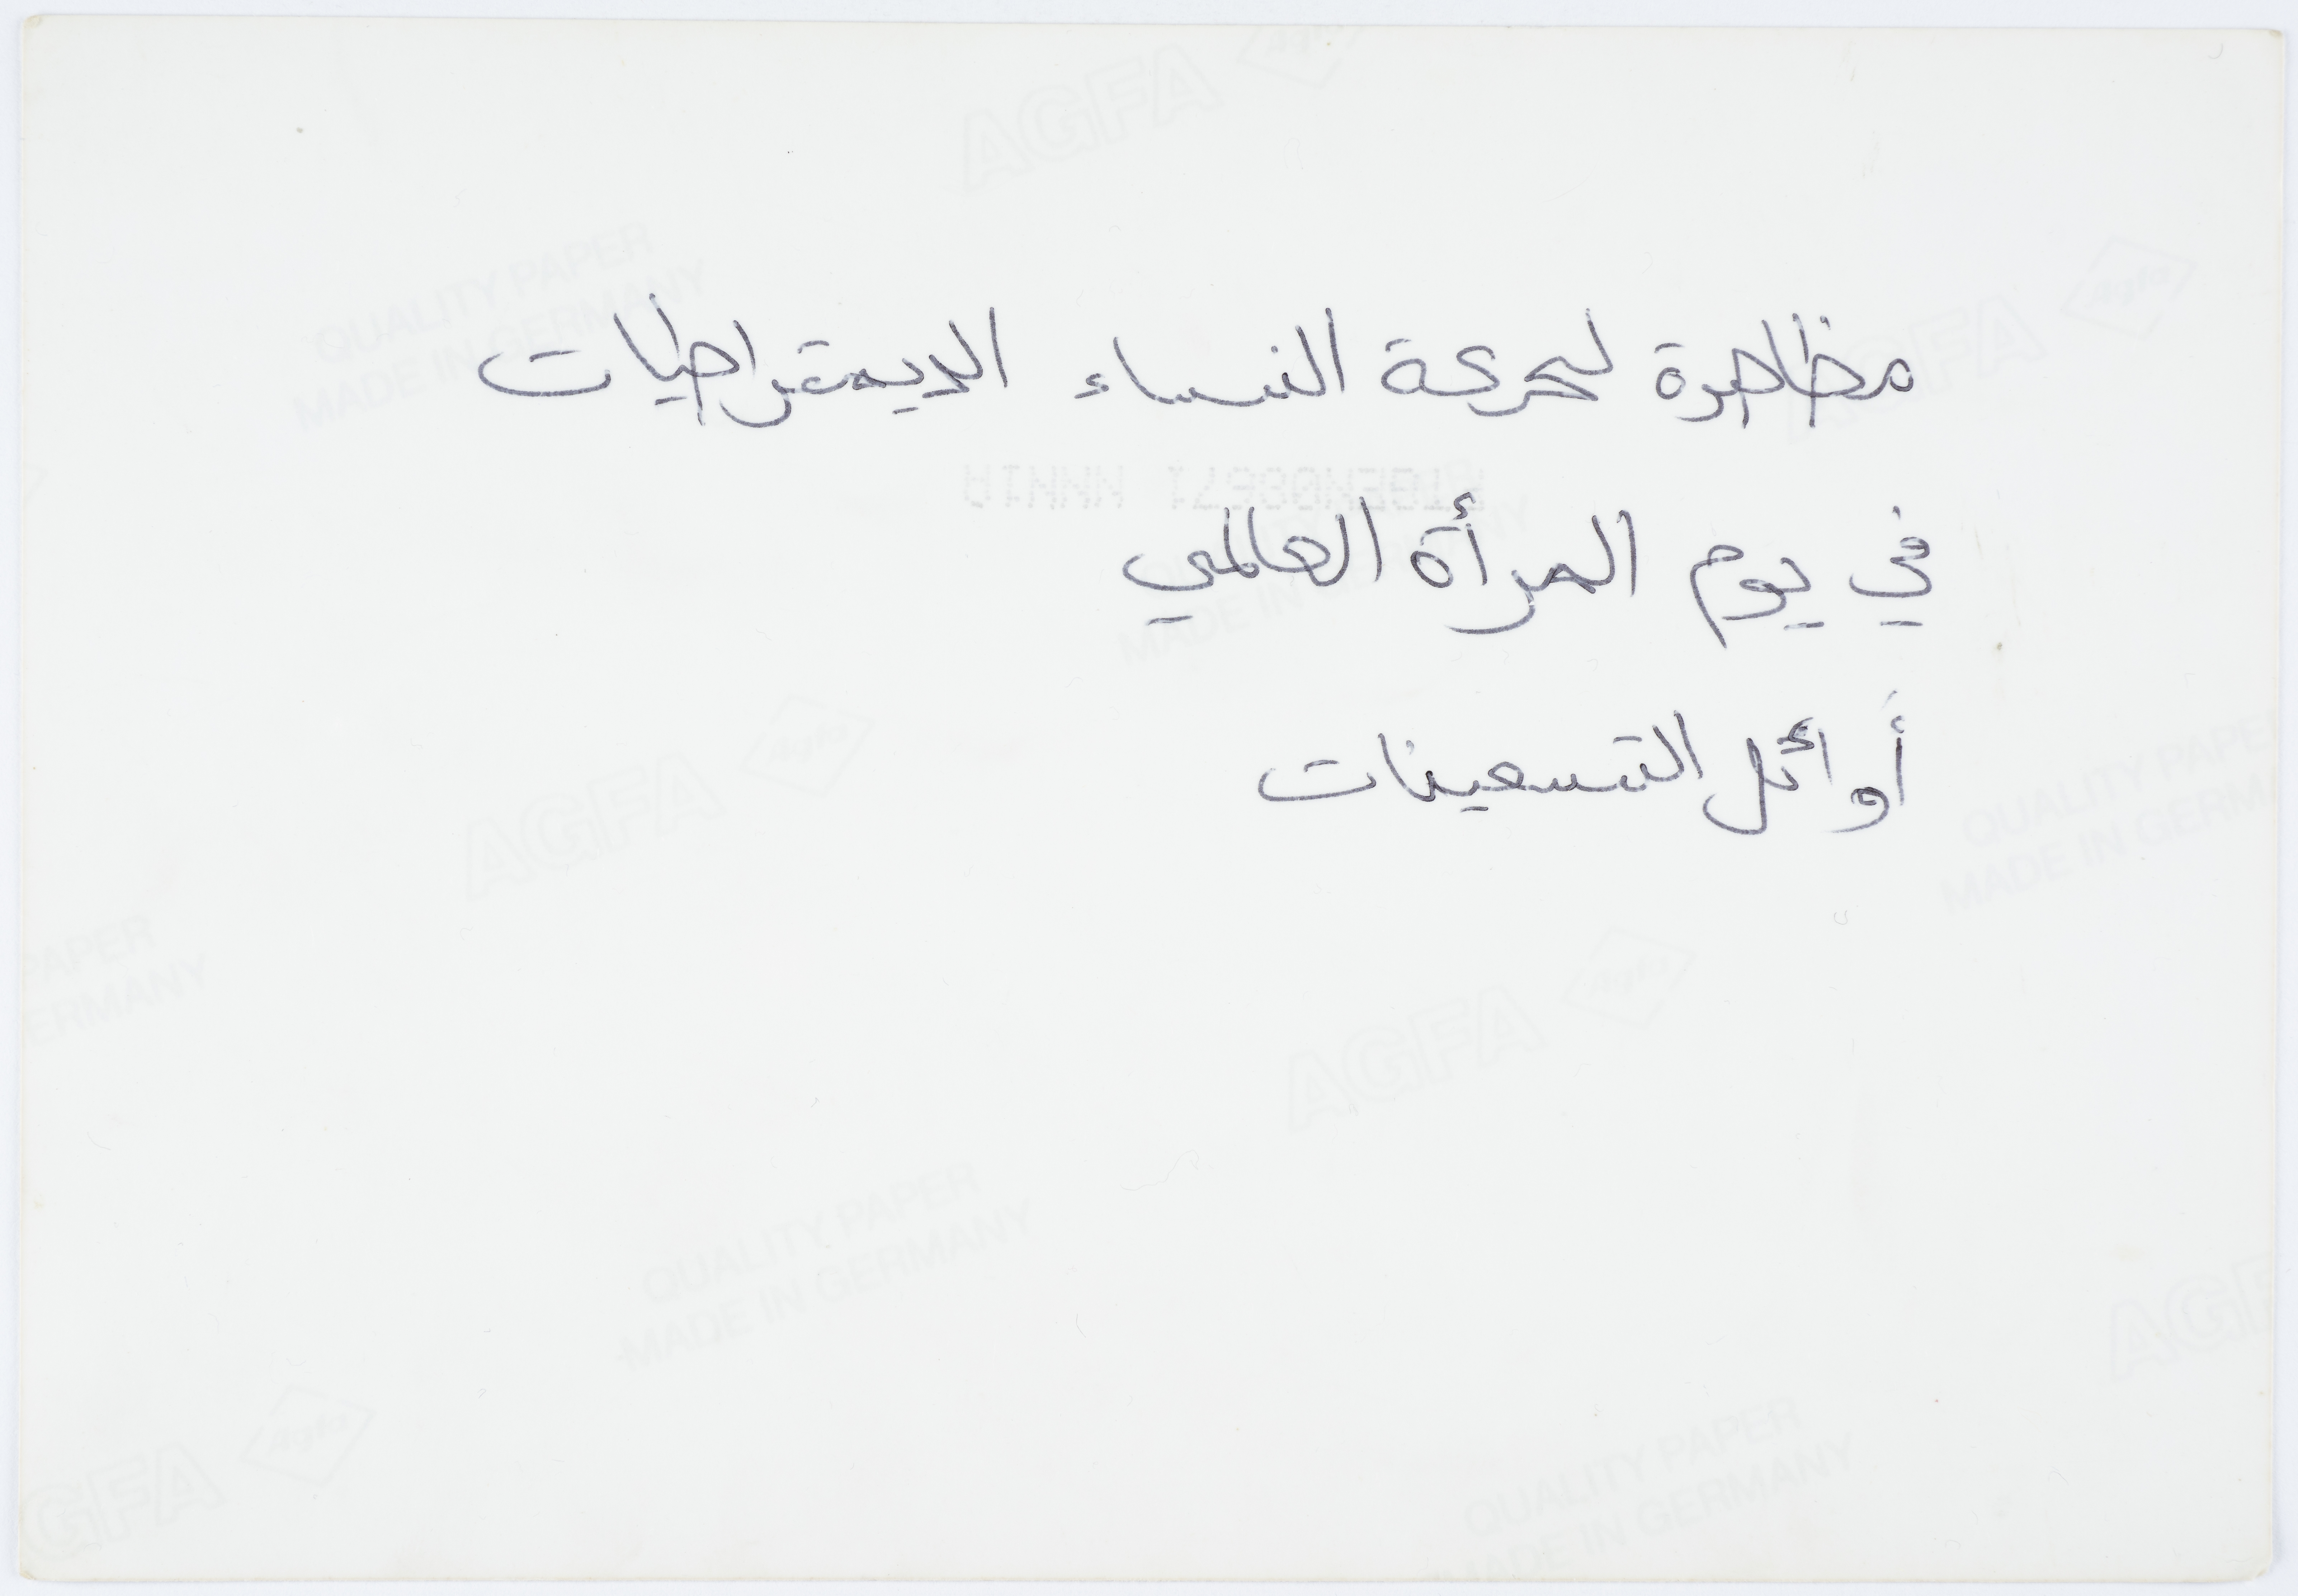 مظاهرة لحركة النساء الديمقراطيات
في يوم المرأة العالمي
أوائل التسعينات
AGFA
Agfa
QUALITY PAPER
MADE IN GERMANY